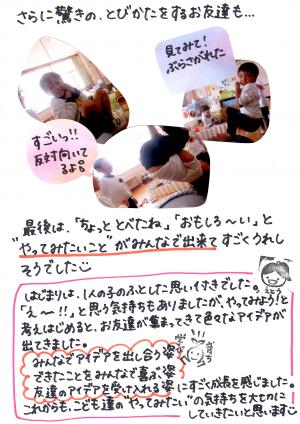 さらに驚きの、とびかたをするお友達も…
見てみて！
ぶらさがれた
すごいっ!!
反対向いて
るよ。
最後は、「ちょっと とべたね」「おもしろ〜い」と
"やってみたいこと"がみんなで出来て すごくうれし
そうでした
はじまりは、1人の子のふとした思い付きでした。
「え〜!!」と思う気持ちもありましたが、やってみよう!と
考えはじめると、お友達が集まってきて色々なアイデアが
出てきました。
みんなでアイデアを出し合う姿
できたことをみんなで喜ぶ姿
友達のアイデアを受け入れる姿 にすごく成長を感じました。
これからも、こども達の"やってみたい"の気持ちを大切に
していきたいと思います